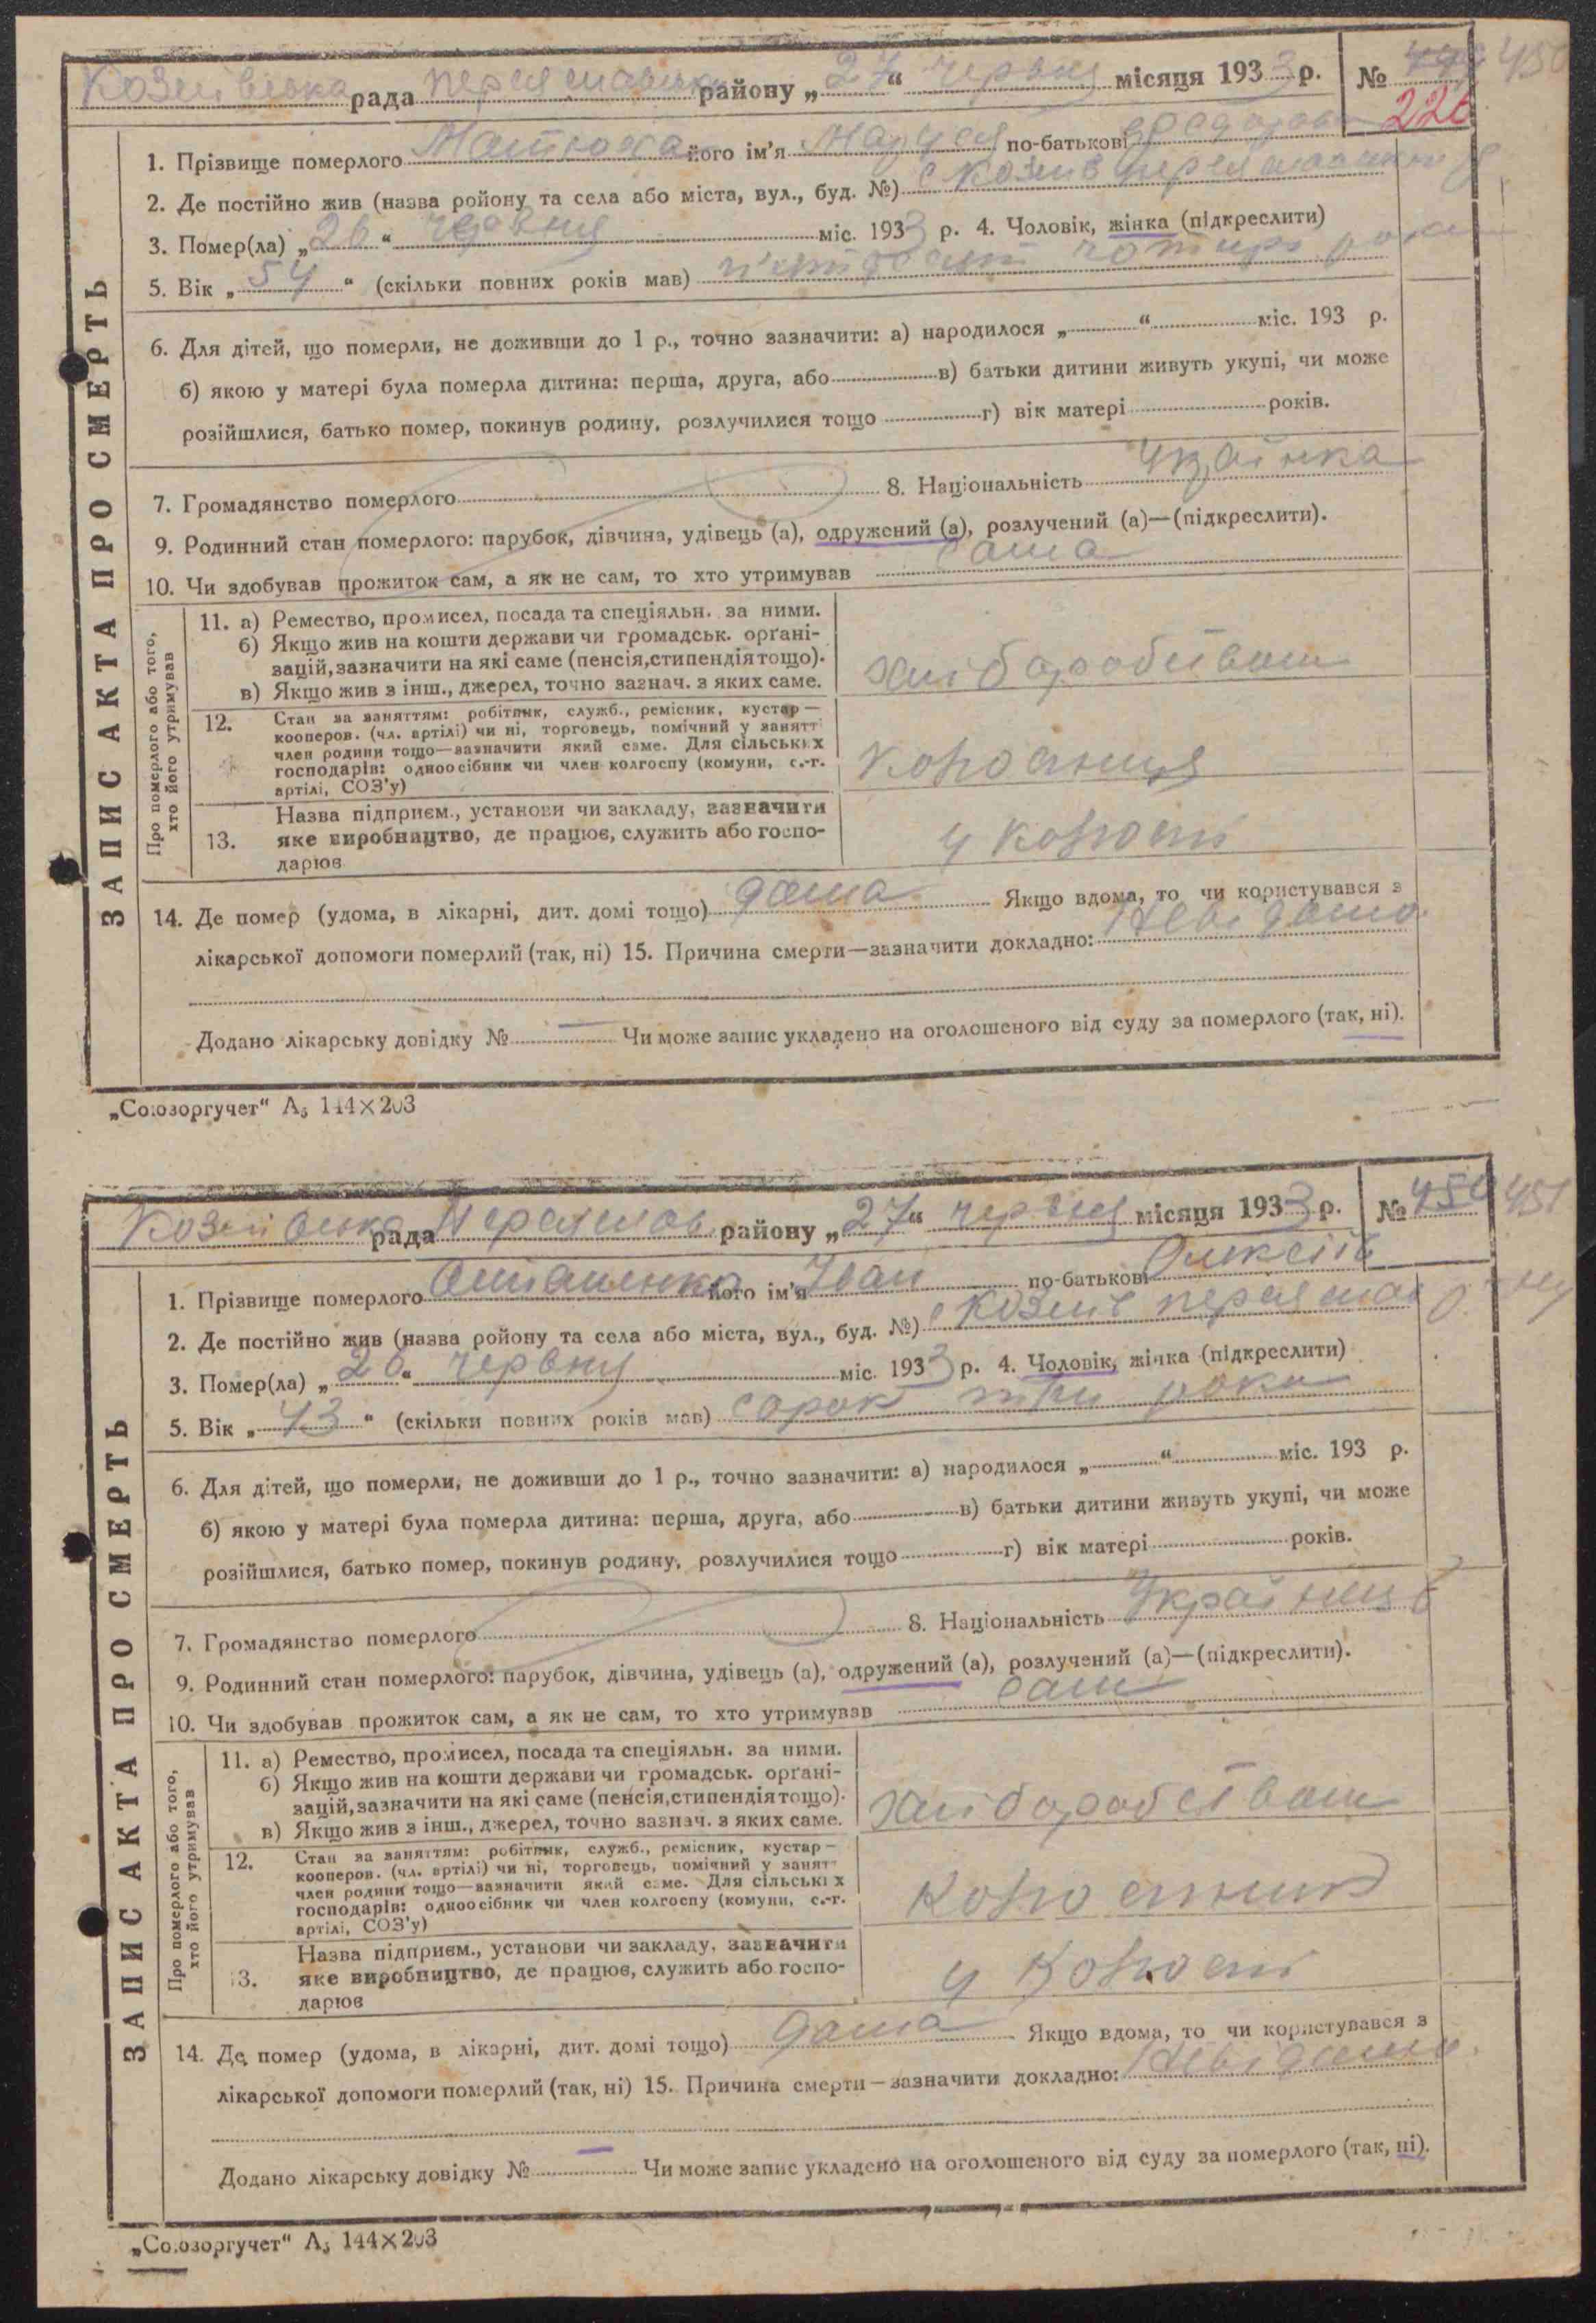 Козлівська рада Переяславськ району „27“ червня місяця 1933 р. № 449 450
226
ЗАПИС АКТА ПРО СМЕРТЬ
1. Прізвище померлого Матюха його ім'я Маруся по-батькові
2. Де постійно жив (назва ройону та села або міста, вул., буд. №) с Козлів
3. Помер(ла) „26“ червня міс. 1933 р. 4. Чоловік, жінка (підкреслити)
5. Вік „54“ (скільки повних років мав) п'ятдесят чотири роки
6. Для дітей, що померли, не доживши до 1 р., точно зазначити: а) народилося „ “ міс. 193 р.
б) якою у матері була померла дитина: перша, друга, або в) батьки дитини живуть укупі, чи може
розійшлися, батько помер, покинув родину, розлучилися тощо г) вік матері років.
7. Громадянство померлого 8. Національність Українка
9. Родинний стан померлого: парубок, дівчина, удівець (а), одружений (а), розлучений (а)—(підкреслити).
10. Чи здобував прожиток сам, а як не сам, то хто утримував сама
Про померлого або того,
хто його утримував
11. а) Ремество, промисел, посада та спеціяльн. за ними.
б) Якщо жив на кошти держави чи громадськ. орґані-
зацій, зазначити на які саме (пенсія, стипендія тощо).
в) Якщо жив з інш., джерел, точно зазнач. з яких саме.
хліборобством
12. Стан за заняттям: робітник, служб., ремісник, кустар—
кооперов. (чл. артілі) чи ні, торговець, помічний у занятті
член родини тощо—зазначити який саме. Для сільських
господарів: одноосібник чи член колгоспу (комуни, с.-г.
артілі, СОЗ'у)
13. Назва підприєм., установи чи закладу, зазначити
яке виробництво, де працює, служить або госпо-
дарює
у колгоспі
14. Де помер (удома, в лікарні, дит. домі тощо) дома Якщо вдома, то чи користувався з
лікарської допомоги померлий (так, ні) 15. Причина смерти—зазначити докладно: Невідомо
Додано лікарську довідку № — Чи може запис укладено на оголошеного від суду за померлого (так, ні).
„Союзоргучет“ А₅ 144×203
Козлівська рада Переяслав району „27“ червня місяця 1933 р. № 450 451
ЗАПИС АКТА ПРО СМЕРТЬ
1. Прізвище померлого його ім'я Іван по-батькові Олексіїв
2. Де постійно жив (назва ройону та села або міста, вул., буд. №) с Козлів переяслав
3. Помер(ла) „26“ червня міс. 1933 р. 4. Чоловік, жінка (підкреслити)
5. Вік „43“ (скільки повних років мав) сорок три роки
6. Для дітей, що померли, не доживши до 1 р., точно зазначити: а) народилося „ “ міс. 193 р.
б) якою у матері була померла дитина: перша, друга, або в) батьки дитини живуть укупі, чи може
розійшлися, батько помер, покинув родину, розлучилися тощо г) вік матері років.
7. Громадянство померлого 8. Національність Українець
9. Родинний стан померлого: парубок, дівчина, удівець (а), одружений (а), розлучений (а)—(підкреслити).
10. Чи здобував прожиток сам, а як не сам, то хто утримував сам
Про померлого або того,
хто його утримував
11. а) Ремество, промисел, посада та спеціяльн. за ними.
б) Якщо жив на кошти держави чи громадськ. орґані-
зацій, зазначити на які саме (пенсія, стипендія тощо).
в) Якщо жив з інш., джерел, точно зазнач. з яких саме.
хліборобством
12. Стан за заняттям: робітник, служб., ремісник, кустар—
кооперов. (чл. артілі) чи ні, торговець, помічний у занятт
член родини тощо—зазначити який саме. Для сільських
господарів: одноосібник чи член колгоспу (комуни, с.-г.
артілі, СОЗ'у)
колгоспник
13. Назва підприєм., установи чи закладу, зазначити
яке виробництво, де працює, служить або госпо-
дарює
у колгоспі
14. Де помер (удома, в лікарні, дит. домі тощо) дома Якщо вдома, то чи користувався з
лікарської допомоги померлий (так, ні) 15. Причина смерти—зазначити докладно: Невідомо
Додано лікарську довідку № — Чи може запис укладено на оголошеного від суду за померлого (так, ні).
„Союзоргучет“ А₅ 144×203